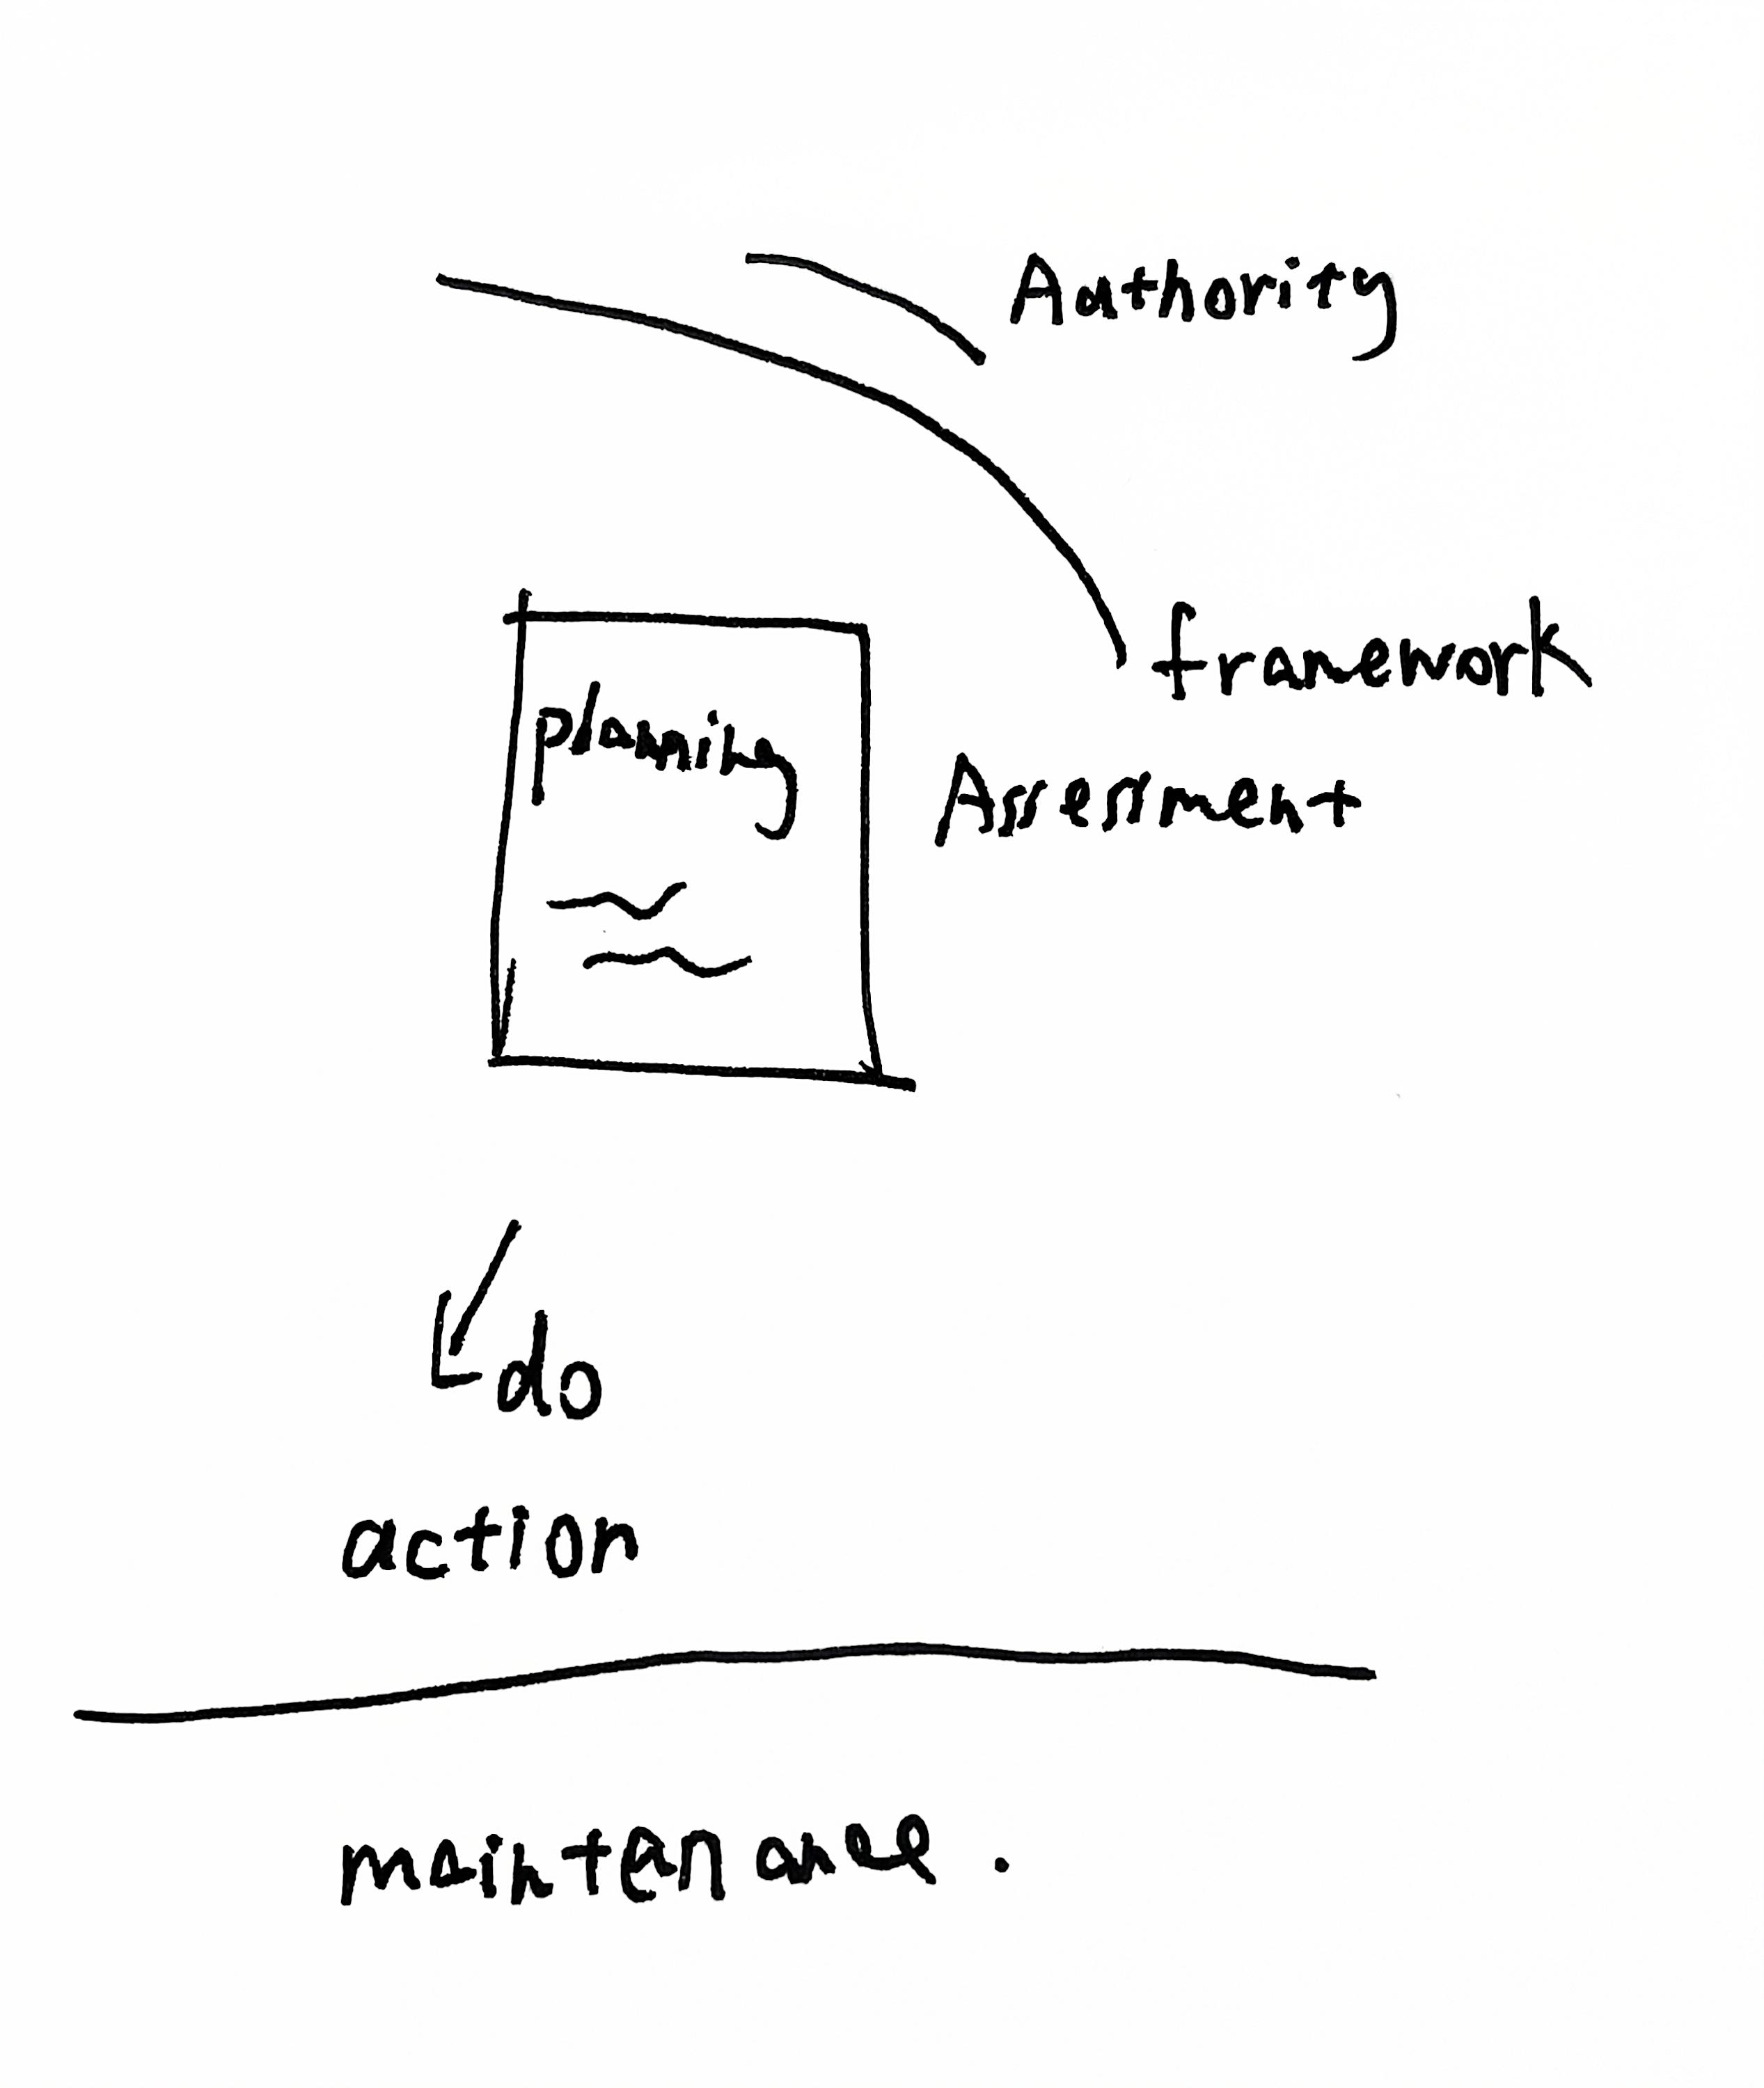 Authority
framework
planning
Assessment
do
action
maintenance.